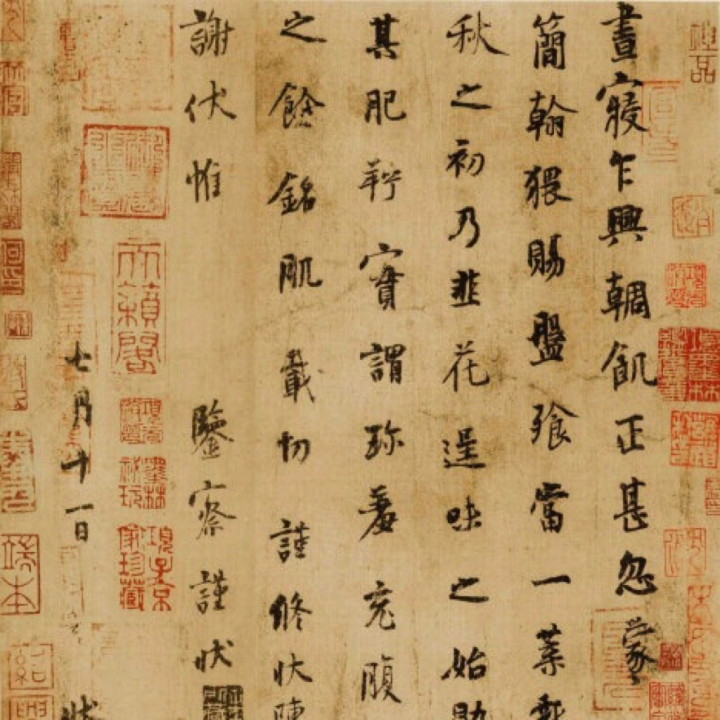 晝寢乍興輖飢正甚忽蒙
簡翰猥賜盤飧當一葉報
秋之初乃韭花逞味之始助
其肥羜實謂珍羞充腹
之餘銘肌載切謹修狀陳
謝伏惟鑒察謹狀
七月十一日狀
天籟閣
項子京家珍藏